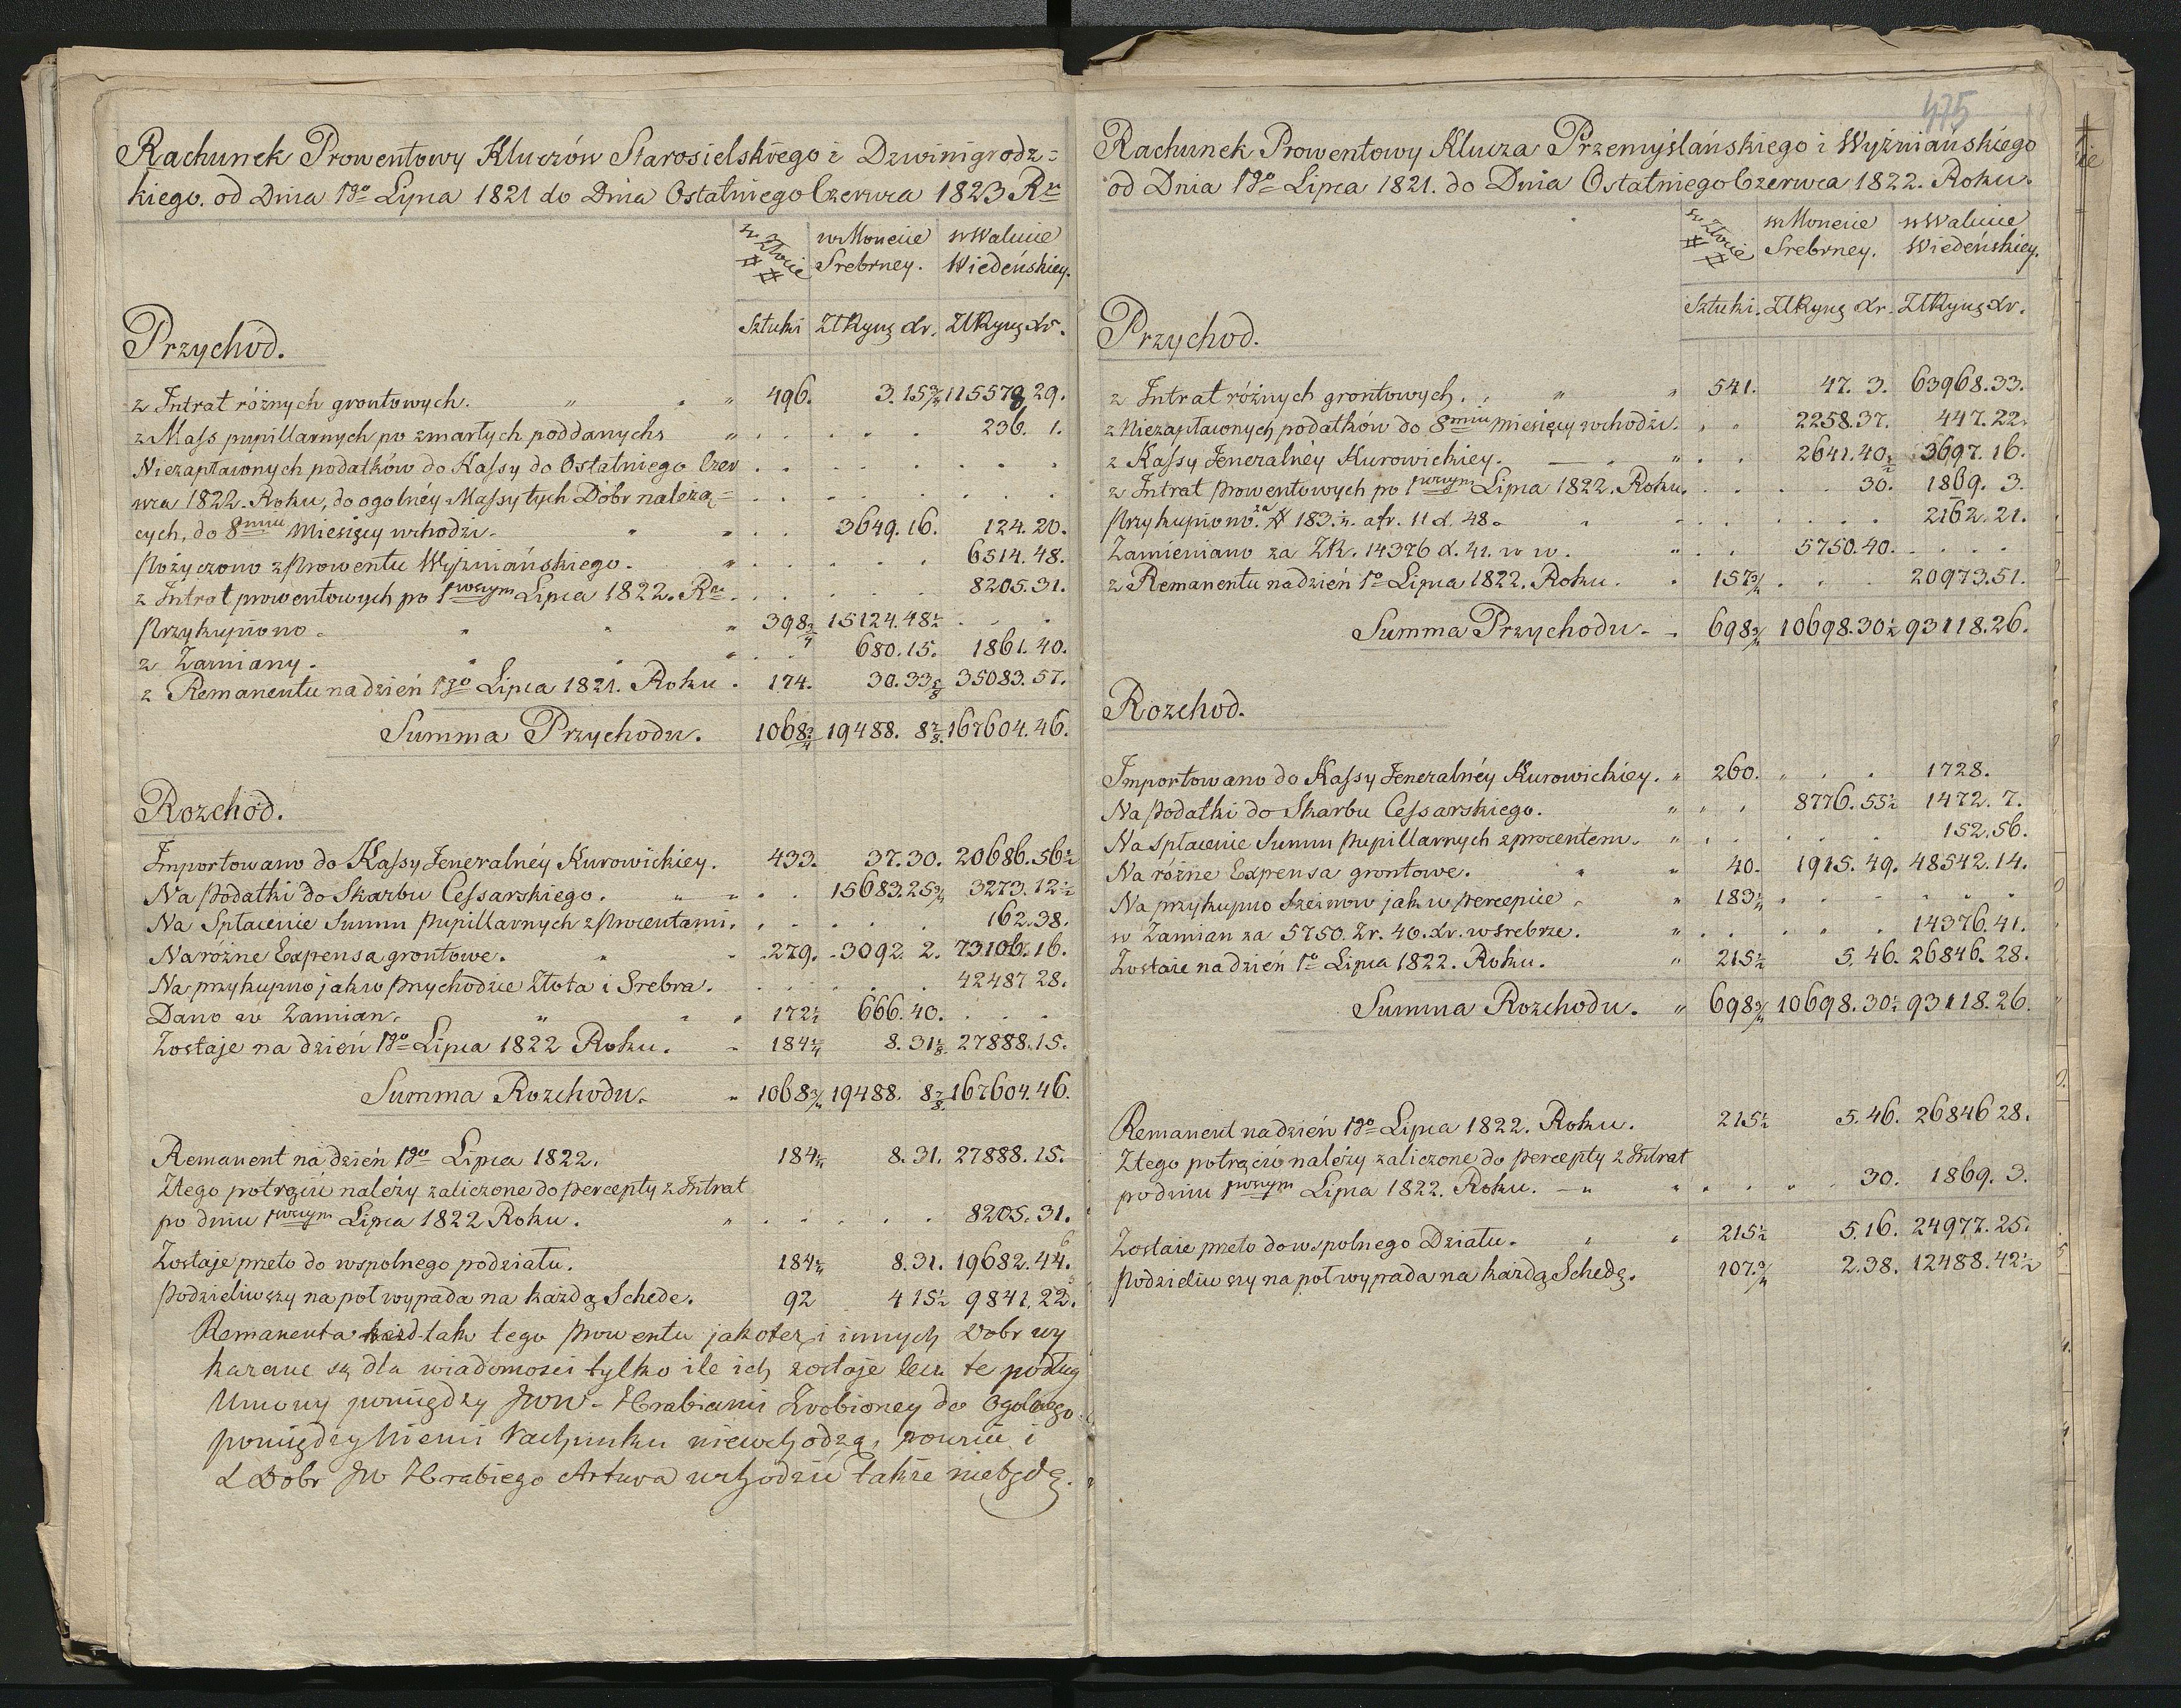 Rachunek Prowentowy Kluczów Starosielskiego i Dzwinigrodz=
kiego. od Dnia 1go Lipca 1821 do Dnia Ostatniego Czerwca 1823 Ru
w Złocie ## w Monecie Srebrney. w Walucie Wiedeńskiey.
Sztuki ZłRyng xr. ZłRyng xr.
Przychod.
z Intrat różnych grontowych. " " 496. 3. 15 3/4 115578 29.
z Mass pupillarnych po zmarłych poddanych " . . . . 236. 1.
Niezapłaconych podatków do Kassy do Ostatniego Czer
wca 1822. Roku, do ogolnéy Massy tych Dóbr należą=
cych, do 8miu Miesięcy wchodzi. " " 3649. 16. 124. 20.
Pożyczono z Prowentu Wyżniańskiego. " 6514. 48.
z Intrat prowentowych po 1wszym Lipca 1822. Ru. 8205. 31.
Przykupiono. " " " 398 3/4 15124. 48 1/2
z Zamiany. " " " 680. 15. 1861. 40.
z Remanentu na dzień 1go Lipca 1821. Roku. 174. 30. 33 5/8 35083. 57.
Summa Przychodu. 1068 3/4 19488. 8 7/8. 167604. 46.
Rozchod.
Importowano do Kassy Jeneralnéy Kurowickiey. 433. 37. 30. 20686. 56 1/2
Na podatki do Skarbu Cessarskiego. " " 15683. 25 3/4 3273. 12 1/2
Na Spłacenie Summ pupillarnych z Procentami. 162. 38.
Na różne Expensa grontowe. " " 279. 3092. 2. 73106. 16.
Na przykupno jak w przychodzie Złota i Srebra. 42487 28.
Dano w Zamian. " " " 172 1/2 666. 40.
Zostaje na dzień 1go Lipca 1822 Roku. " 184 1/4 8. 31 1/8 27888. 15.
Summa Rozchodu. " 1068 3/4 19488. 8 7/8. 167604. 46.
Remanent na dzień 1go Lipca 1822. 184 1/4 8. 31. 27888. 15.
Ztego potrącić należy zaliczone do percepty z Intrat
po dniu 1wszym Lipca 1822 Roku. " 8205. 31.
Zostaje przeto do wspolnego podziału. 184 1/4 8. 31. 19682. 44.
Podzieliwszy na poł wypada na każdą Schede. 92 4 15 1/2 9841. 22.
Remanenta tak tego Prowentu jakoteż i innych Dobr wy
kazane są dla wiadomosci tylko ile ich zostaje lecz te podług
Umowy pomiędzy JWW. Hrabiami Zrobioney do Ogolnego
pomiędzy Niemi Rachunku niewchodzą,
z Dobr JW Hrabiego Artura wchodzić także niebędą.
475
Rachunek Prowentowy Klucza Przemyślańskiego i Wyżniańskiego
od Dnia 1go Lipca 1821. do Dnia Ostatniego Czerwca 1822. Roku.
w Złocie ## w Monecie Srebrney. w Walucie Wiedeńskiey.
Sztuki. ZłRyng xr. ZłRyng xr.
Przychod.
z Intrat różnych grontowych. " " 541. 47. 3. 63968. 33.
z Niezapłaconych podatków do 8miu miesięcy wchodzi. 2258. 37. 447. 22.
z Kassy Jeneralnéy Kurowickiey. " 2641. 40 1/2 3697. 16.
z Intrat prowentowych po 1wszym Lipca 1822. Roku. 30. 1869. 3.
Przykupiono za # 183 1/4. a fr. 11 x. 48. 2162. 21.
Zamieniano za ZR. 14376 x. 41. w w. " 5750. 40.
z Remanentu na dzień 1o Lipca 1822. Roku. 157 3/4 20973. 51.
Summa Przychodu. 698 3/4 10698. 30 1/2 93118. 26.
Rozchod.
Importowano do Kassy Jeneralnéy Kurowickiey. " 260. 1728.
Na podatki do Skarbu Cessarskiego. " 8776. 55 1/2 1472. 7.
Na spłacenie Summ Pupillarnych z procentem. " 152. 56.
Na różne Expensa grontowe. " " 40. 1915. 49. 48542. 14.
Na przykupno jak w percepcie " 183 1/4
w Zamian za 5750. Zr. 40. xr. w srebrze. " 14376. 41.
Zostaie na dzień 1o Lipca 1822. Roku. " 215 1/2 5. 46. 26846. 28.
Summa Rozchodu. " 698 3/4 10698. 30 1/2 93118. 26.
Remanent na dzień 1go Lipca 1822. Roku. 215 1/2 5. 46. 26846 28.
Ztego potrącić należy zaliczone do percepty z Intrat
po dniu 1wszym Lipca 1822. Roku. " 30. 1869. 3.
Zostaie przeto do wspolnego Działu. " 215 1/2 5. 16. 24977. 25.
Podzieliwszy na poł wypada na każdą Schedę. 107. 3/4 2. 38. 12488. 42 1/2